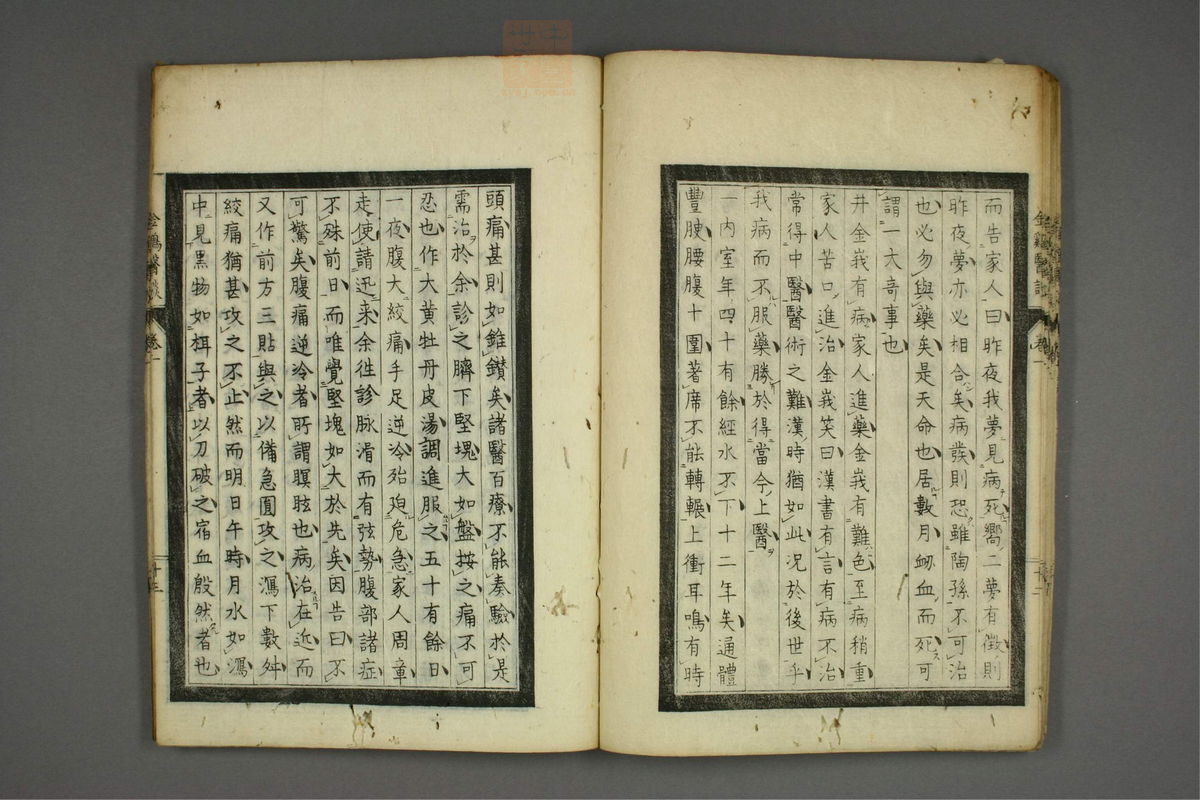 而告家人曰昨夜我夢見病死嚮二夢有徵則
昨夜夢亦必相合矣病發則恐雖陶孫不可治
也必勿與藥矣是天命也居數月衂血而死可
謂一大奇事也
井金峩有病家人進藥金峩有難色至病稍重
家人苦口進治金峩笑曰漢書有言有病不治
常得中醫醫術之難漢時猶如此况於後世乎
我病而不服藥勝於得當今上醫
一内室年四十有餘經水不下十二年矣通體
豐腴腰腹十圍著席不能轉輾上衝耳鳴有時
頭痛甚則如錐鑽矣諸醫百療不能奏驗於是
需治於余診之臍下堅塊大如盤按之痛不可
忍也作大黄牡丹皮湯調進服之五十有餘日
一夜腹大絞痛手足逆冷殆死危急家人周章
走使請迅来余徃診脉滑而有弦勢腹部諸症
不殊前日而唯覺堅塊如大於先矣因告曰不
可驚矣腹痛逆冷者所謂瞑眩也病治在近而
又作前方三貼與之以備急圓攻之瀉下數舛
絞痛猶甚攻之不止然而明日午時月水如瀉
中見黒物如栮子者以刀破之宿血殷然者也
金鷄醫談
卷一
十二
金鷄醫談
卷一
十三